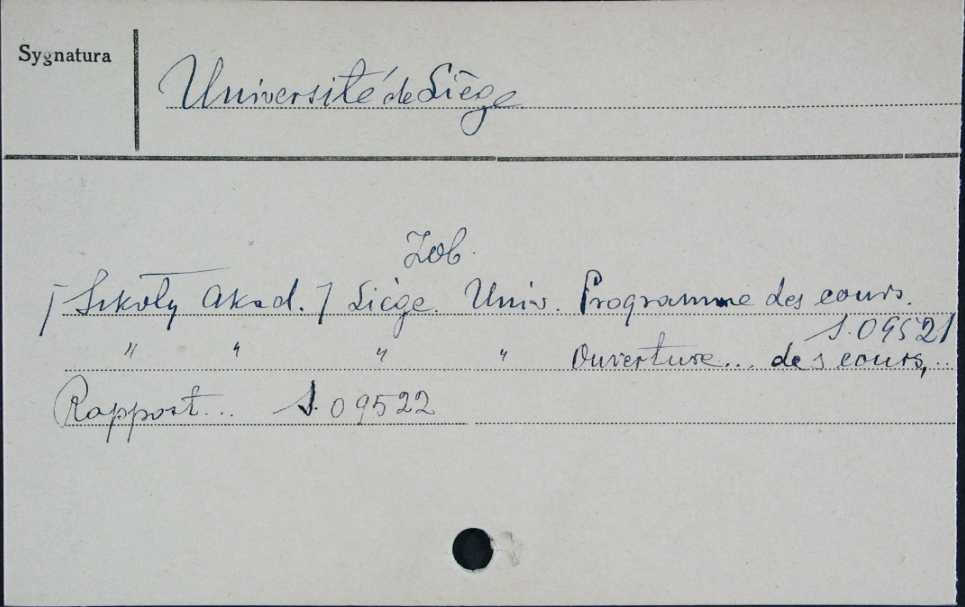 Sygnatura
Université de Liège
Zob.
[Szkoły Akad.] Liège. Univ. Programme des cours.
S.09521
" " " " Ouverture... des cours,..
Rapport... S.09522